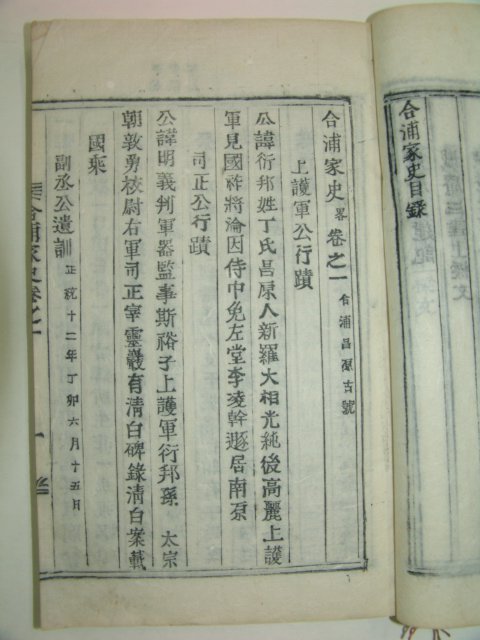 合浦家史目録
合浦家史畧卷之一 合浦昌源古號
上護軍公行蹟
公諱衍邦姓丁氏昌原人新羅大相光純後高麗上護
軍見國祚將淪因侍中免左堂李凌幹遯居南原
司正公行蹟
公諱明義判軍器監事斯裕子上護軍衍邦孫 太宗
朝敦勇校尉右軍司正宰靈巖有清白碑錄清白案載
國乘
副丞公遺訓 正統十二年丁卯六月十五日
合浦家史卷之一